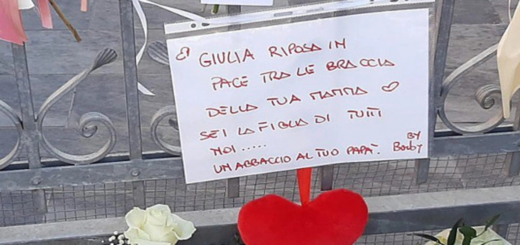 GIULIA RIPOSA IN
PACE TRA LE BRACCIA
DELLA TUA MAMMA ♡
SEI LA FIGLIA DI TUTTI
NOI .....
UN ABBACCIO AL TUO PAPA'.
BY
Barby